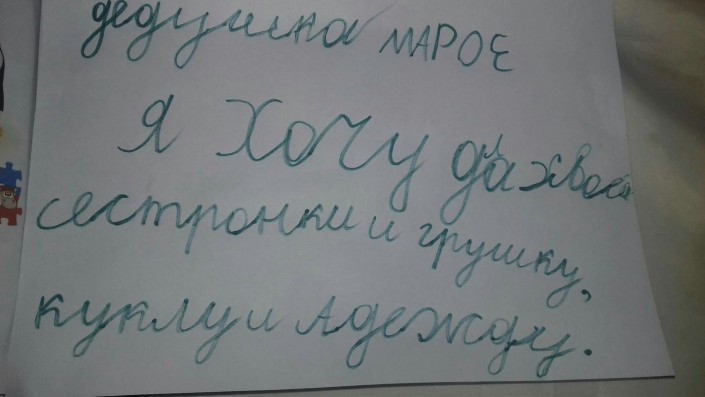 дедушка МАРОЕ
Я Хочу
сестронки и грушку,
куклу и Адежду.